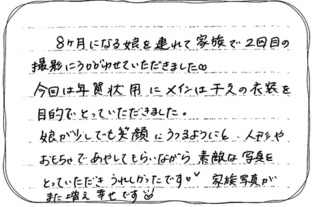 8ヶ月になる娘を連れて家族で2回目の
撮影にうかがわせていただきました∞
今回は年賀状用にメインは干支の衣装を
目的でとっていただきました。
娘が少しでも笑顔にうつるように 人形や
おもちゃであやしてもらいながら 素敵な写真を
とっていただき うれしかったです♡♡ 家族写真が
また増え幸せです